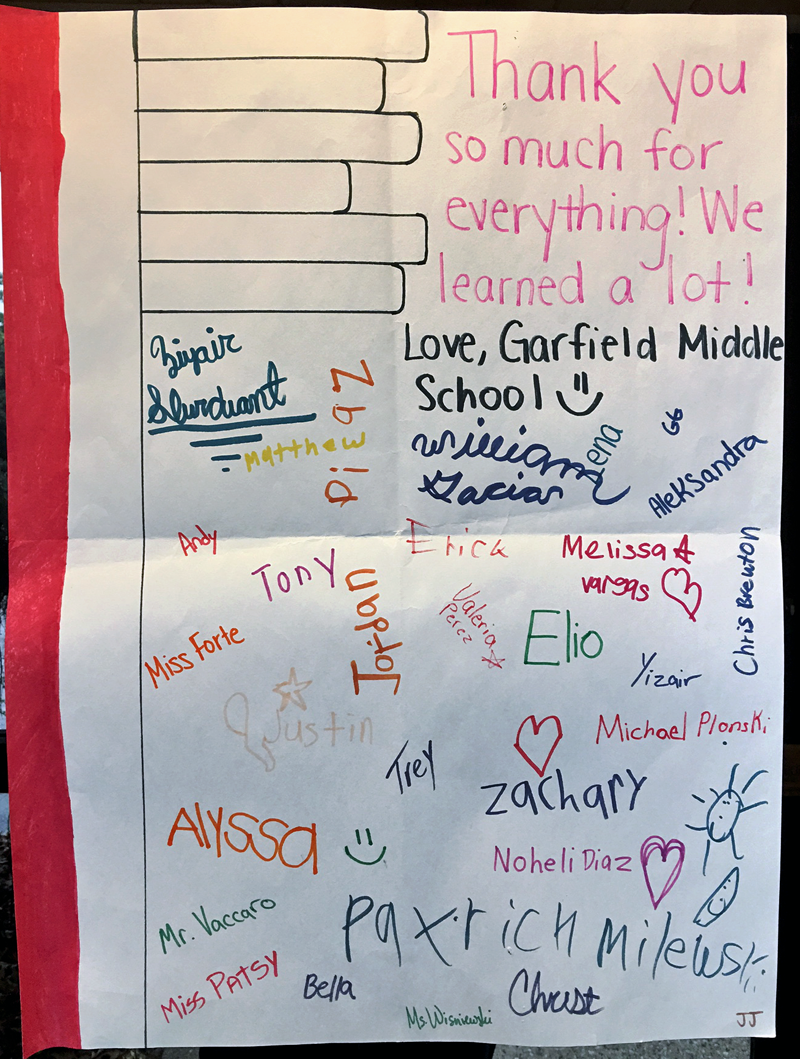 Thank you
so much for
everything! We
learned a lot!
Love, Garfield Middle
School
Ziyair
Sturdiant
Matthew
Diaz
William
Garcia
Lena
GG
Aleksandra
Andy
Tony
Jordan
Erick
Melissa
vargas
Chris Brewton
Valeria
Perez
Elio
Yizair
Miss Forte
Justin
Michael Plonski
Trey
zachary
Alyssa
Noheli Diaz
Mr. Vaccaro
Miss PATSY
Bella
Milewski
Ms. Wisniewski
JJ